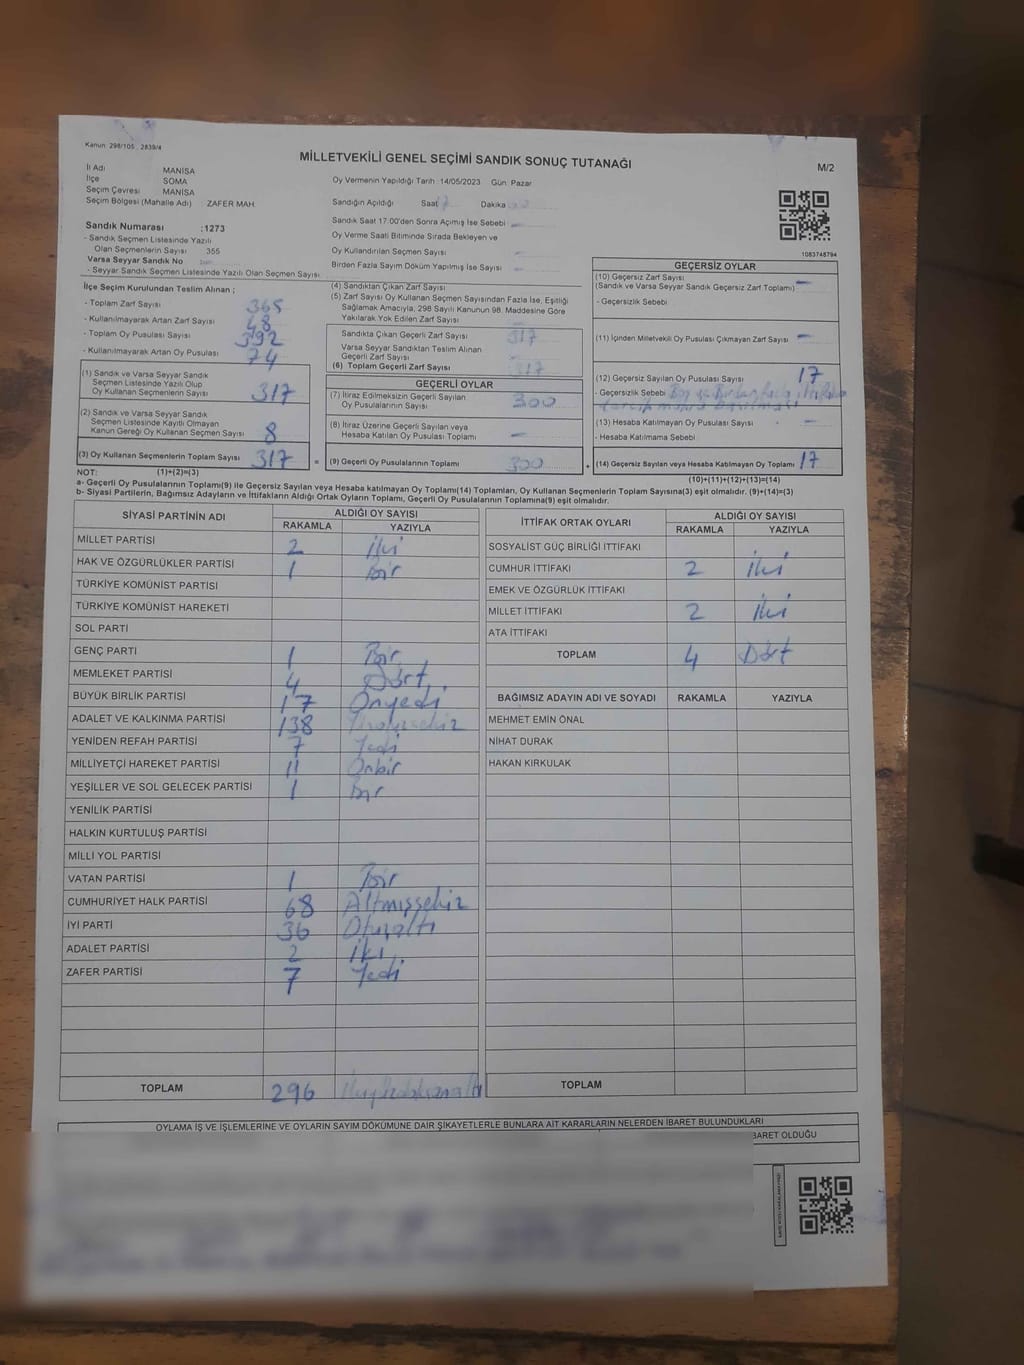 Kanun: 298/105 , 2839/4
MİLLETVEKİLİ GENEL SEÇİMİ SANDIK SONUÇ TUTANAĞI
M/2
İl Adı MANİSA
İlçe SOMA
Seçim Çevresi MANİSA
Seçim Bölgesi (Mahalle Adı) ZAFER MAH.
Oy Vermenin Yapıldığı Tarih :14/05/2023 Gün: Pazar
Sandığın Açıldığı Saat Dakika
Sandık Saat 17:00'den Sonra Açımış İse Sebebi -
Oy Verme Saati Bitiminde Sırada Bekleyen ve
Oy Kullandırılan Seçmen Sayısı -
Birden Fazla Sayım Döküm Yapılmış İse Sayısı -
1083748794
Sandık Numarası :1273
- Sandık Seçmen Listesinde Yazılı
Olan Seçmenlerin Sayısı 355
Varsa Seyyar Sandık No
- Seyyar Sandık Seçmen Listesinde Yazılı Olan Seçmen Sayısı
İlçe Seçim Kurulundan Teslim Alınan ;
- Toplam Zarf Sayısı 365
- Kullanılmayarak Artan Zarf Sayısı 48
- Toplam Oy Pusulası Sayısı 392
- Kullanılmayarak Artan Oy Pusulası 74
(1) Sandık ve Varsa Seyyar Sandık
Seçmen Listesinde Yazılı Olup
Oy Kullanan Seçmenlerin Sayısı 317
(2) Sandık ve Varsa Seyyar Sandık
Seçmen Listesinde Kayıtlı Olmayan
Kanun Gereği Oy Kullanan Seçmen Sayısı 8
(3) Oy Kullanan Seçmenlerin Toplam Sayısı 317 =
(4) Sandıktan Çıkan Zarf Sayısı
(5) Zarf Sayısı Oy Kullanan Seçmen Sayısından Fazla İse, Eşitliği
Sağlamak Amacıyla, 298 Sayılı Kanunun 98. Maddesine Göre
Yakılarak Yok Edilen Zarf Sayısı
Sandıkta Çıkan Geçerli Zarf Sayısı 317
Varsa Seyyar Sandıktan Teslim Alınan
Geçerli Zarf Sayısı -
(6) Toplam Geçerli Zarf Sayısı 317
GEÇERLİ OYLAR
(7) İtiraz Edilmeksizin Geçerli Sayılan
Oy Pusulalarının Sayısı 300
(8) İtiraz Üzerine Geçerli Sayılan veya
Hesaba Katılan Oy Pusulası Toplamı -
(9) Geçerli Oy Pusulalarının Toplamı 300 +
GEÇERSİZ OYLAR
(10) Geçersiz Zarf Sayısı
(Sandık ve Varsa Seyyar Sandık Geçersiz Zarf Toplamı) -
- Geçersizlik Sebebi
(11) İçinden Milletvekili Oy Pusulası Çıkmayan Zarf Sayısı -
(12) Geçersiz Sayılan Oy Pusulası Sayısı 17
- Geçersizlik Sebebi Boş ve Birden fazla
(13) Hesaba Katılmayan Oy Pusulası Sayısı -
- Hesaba Katılmama Sebebi
(14) Geçersiz Sayılan veya Hesaba Katılmayan Oy Toplamı 17
NOT: (1)+(2)=(3) (10)+(11)+(12)+(13)=(14)
a- Geçerli Oy Pusulalarının Toplamı(9) ile Geçersiz Sayılan veya Hesaba katılmayan Oy Toplamı(14) Toplamları, Oy Kullanan Seçmenlerin Toplam Sayısına(3) eşit olmalıdır. (9)+(14)=(3)
b- Siyasi Partilerin, Bağımsız Adayların ve İttifakların Aldığı Ortak Oyların Toplamı, Geçerli Oy Pusulalarının Toplamına(9) eşit olmalıdır.
SİYASİ PARTİNİN ADI ALDIĞI OY SAYISI
RAKAMLA YAZIYLA
MİLLET PARTİSİ 2 İki
HAK VE ÖZGÜRLÜKLER PARTİSİ 1 Bir
TÜRKİYE KOMÜNİST PARTİSİ
TÜRKİYE KOMÜNİST HAREKETİ
SOL PARTİ
GENÇ PARTİ 1 Bir
MEMLEKET PARTİSİ 4 Dört
BÜYÜK BİRLİK PARTİSİ 17 Onyedi
ADALET VE KALKINMA PARTİSİ 138
YENİDEN REFAH PARTİSİ 7 Yedi
MİLLİYETÇİ HAREKET PARTİSİ 11 Onbir
YEŞİLLER VE SOL GELECEK PARTİSİ 1 Bir
YENİLİK PARTİSİ
HALKIN KURTULUŞ PARTİSİ
MİLLİ YOL PARTİSİ
VATAN PARTİSİ 1 Bir
CUMHURİYET HALK PARTİSİ 68 Altmışsekiz
İYİ PARTİ 36 Otuzaltı
ADALET PARTİSİ 2 İki
ZAFER PARTİSİ 7 Yedi
TOPLAM 296
İTTİFAK ORTAK OYLARI ALDIĞI OY SAYISI
RAKAMLA YAZIYLA
SOSYALİST GÜÇ BİRLİĞİ İTTİFAKI
CUMHUR İTTİFAKI 2 İki
EMEK VE ÖZGÜRLÜK İTTİFAKI
MİLLET İTTİFAKI 2 İki
ATA İTTİFAKI
TOPLAM 4 Dört
BAĞIMSIZ ADAYIN ADI VE SOYADI RAKAMLA YAZIYLA
MEHMET EMİN ÖNAL
NİHAT DURAK
HAKAN KIRKULAK
TOPLAM
OYLAMA İŞ VE İŞLEMLERİNE VE OYLARIN SAYIM DÖKÜMÜNE DAİR ŞİKAYETLERLE BUNLARA AİT KARARLARIN NELERDEN İBARET BULUNDUKLARI
BARET OLDUĞU